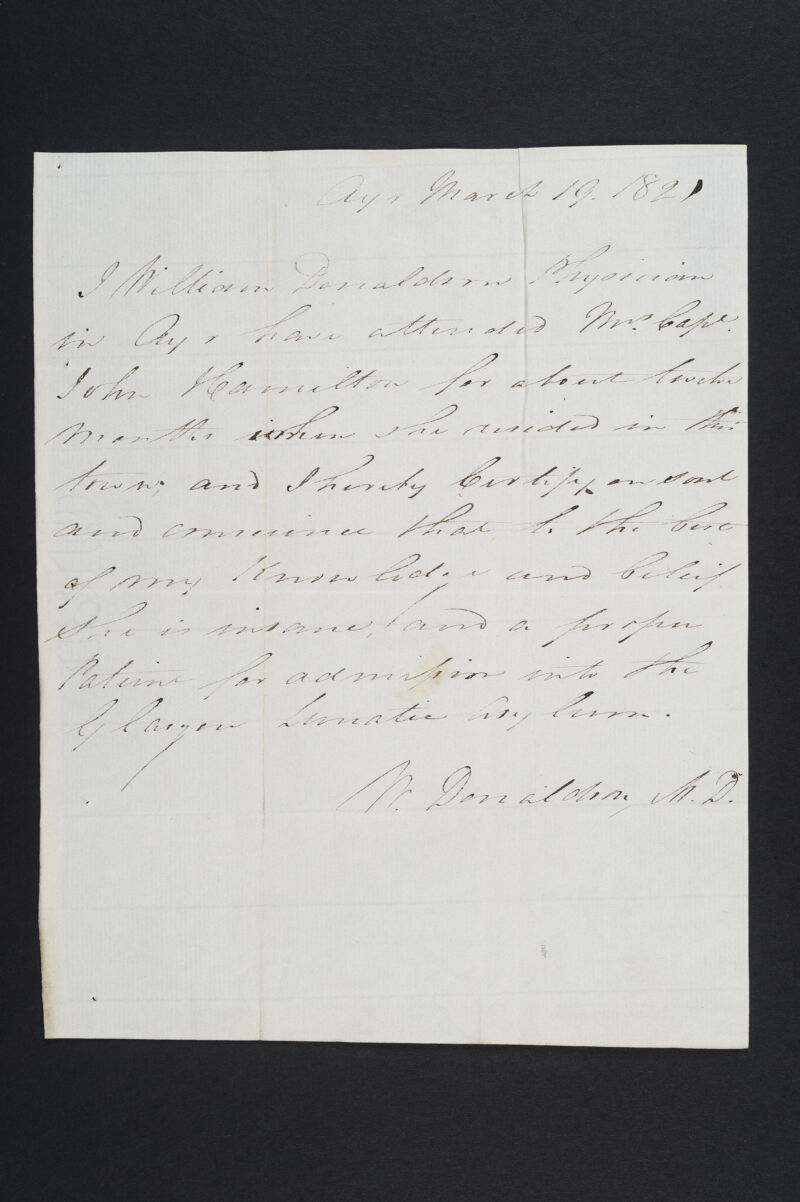 Ayr March 19. 1821
I William Donaldson Physician
in Ayr have attended Mrs. Capt.
John Hamilton for about twelve
months when she resided in this
town; and I hereby Certify, on soul
and conscience that to the best
of my Knowledge and beleif
She is insane, and a proper
Patient for admission into the
Glasgow Lunatic Asylum.
W. Donaldson, M.D.